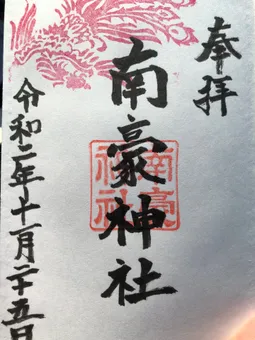 奉拝
南豪神社
令和二年十一月二十五日
南豪神社